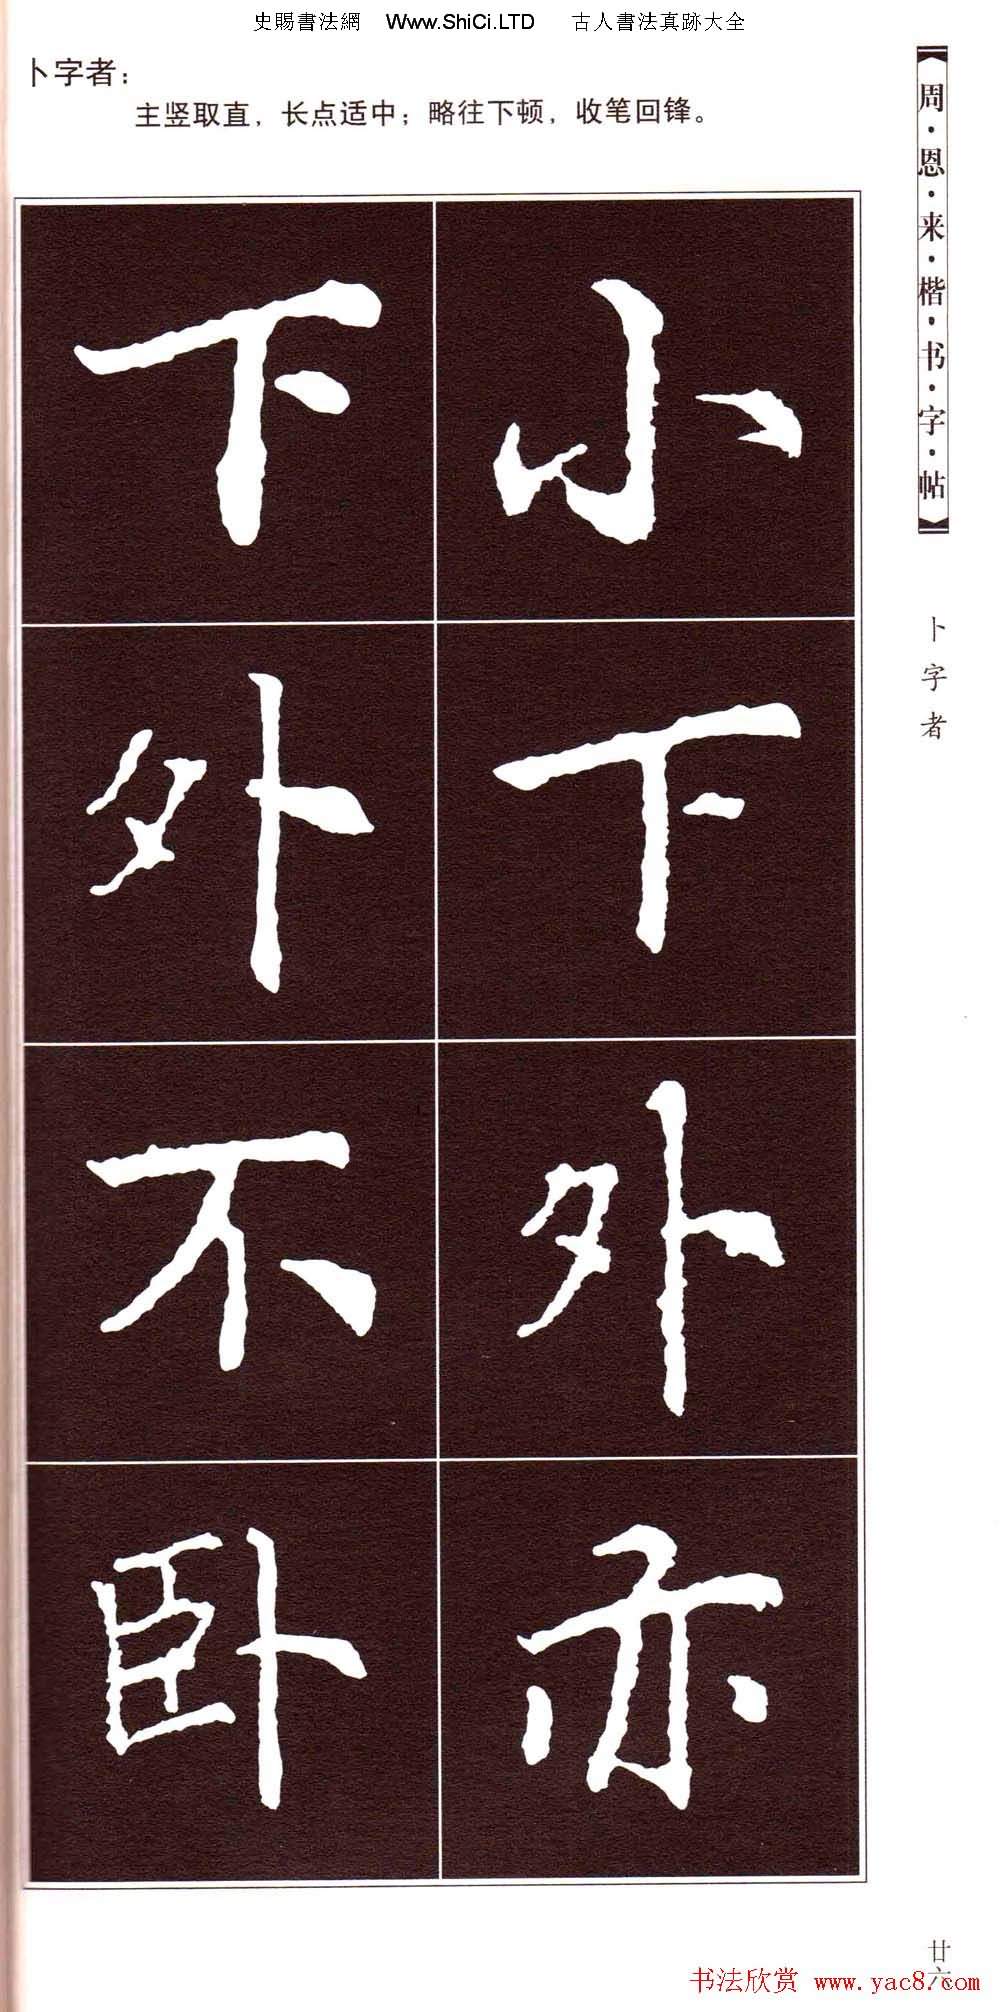 史賜書法網 Www.ShiCi.LTD 古人書法真跡大全
卜字者：
主竖取直，长点适中；略往下顿，收笔回锋。
周·恩·来·楷·书·字·帖
卜字者
小
下
外
亦
下
外
不
卧
廿六
书法欣赏 www.yac8.com